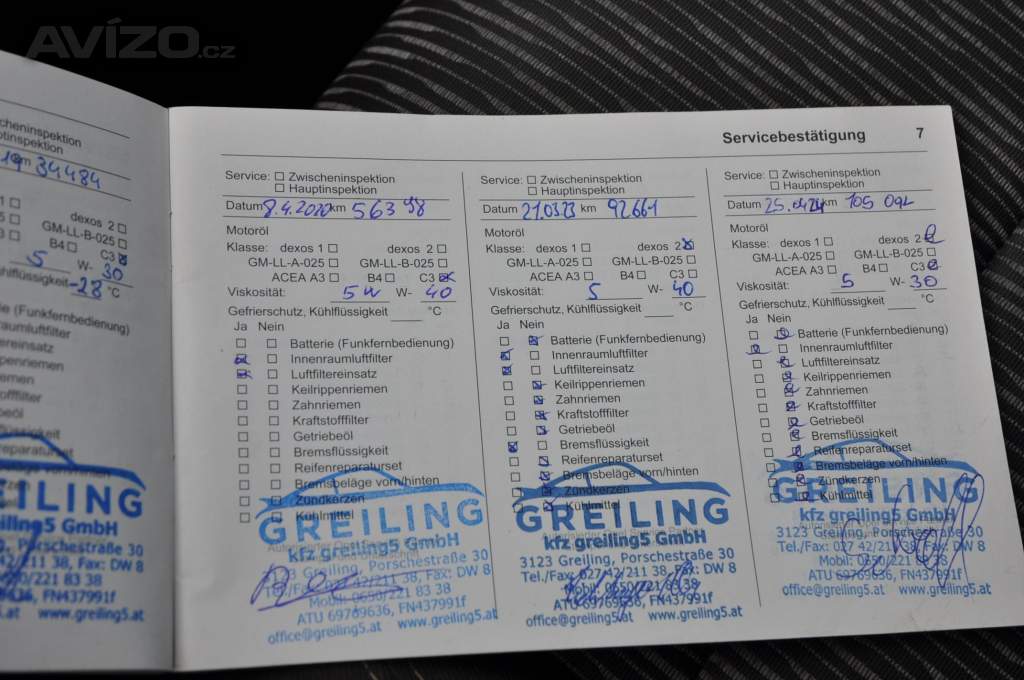 AVÍZO.cz
Servicebestätigung 7
Zwischeninspektion
Hauptinspektion
19 km 34484
dexos 2
GM-LL-B-025
B4 C3
5 W- 30
-28 °C
Service: Zwischeninspektion
Hauptinspektion
Datum 8.4.2020 km 56398
Motoröl
Klasse: dexos 1 dexos 2
GM-LL-A-025 GM-LL-B-025
ACEA A3 B4 C3
Viskosität: 5W W- 40
Gefrierschutz, Kühlflüssigkeit °C
Ja Nein
Batterie (Funkfernbedienung)
Innenraumluftfilter
Luftfiltereinsatz
Keilrippenriemen
Zahnriemen
Kraftstofffilter
Getriebeöl
Bremsflüssigkeit
Reifenreparaturset
Bremsbeläge vorn/hinten
Zündkerzen
Kühlmittel
GREILING
kfz greiling5 GmbH
3123 Greiling, Porschestraße 30
Tel./Fax: 02742/211 38, Fax: DW 8
Mobil: 0650/221 83 38
ATU 69769636, FN437991f
office@greiling5.at www.greiling5.at
Service: Zwischeninspektion
Hauptinspektion
Datum 21.03.23 km 92661
Motoröl
Klasse: dexos 1 dexos 2
GM-LL-A-025 GM-LL-B-025
ACEA A3 B4 C3
Viskosität: 5 W- 40
Gefrierschutz, Kühlflüssigkeit °C
Ja Nein
Batterie (Funkfernbedienung)
Innenraumluftfilter
Luftfiltereinsatz
Keilrippenriemen
Zahnriemen
Kraftstofffilter
Getriebeöl
Bremsflüssigkeit
Reifenreparaturset
Bremsbeläge vorn/hinten
Zündkerzen
Kühlmittel
GREILING
kfz greiling5 GmbH
3123 Greiling, Porschestraße 30
Tel./Fax: 027 42/211 38, Fax: DW 8
Mobil: 0650/221 83 38
ATU 69769636, FN437991f
office@greiling5.at www.greiling5.at
Service: Zwischeninspektion
Hauptinspektion
Datum 25.0424 km 105 092
Motoröl
Klasse: dexos 1 dexos 2
GM-LL-A-025 GM-LL-B-025
ACEA A3 B4 C3
Viskosität: 5 W- 30
Gefrierschutz, Kühlflüssigkeit °C
Ja Nein
Batterie (Funkfernbedienung)
Innenraumluftfilter
Luftfiltereinsatz
Keilrippenriemen
Zahnriemen
Kraftstofffilter
Getriebeöl
Bremsflüssigkeit
Reifenreparaturset
Bremsbeläge vorn/hinten
Zündkerzen
Kühlmittel
GREILING
kfz greiling5 GmbH
3123 Greiling, Porschestraße 30
Tel./Fax: 027 42/211 38, Fax: DW 8
Mobil: 0650/221 83 38
ATU 69769636, FN437991f
office@greiling5.at www.greiling5.at